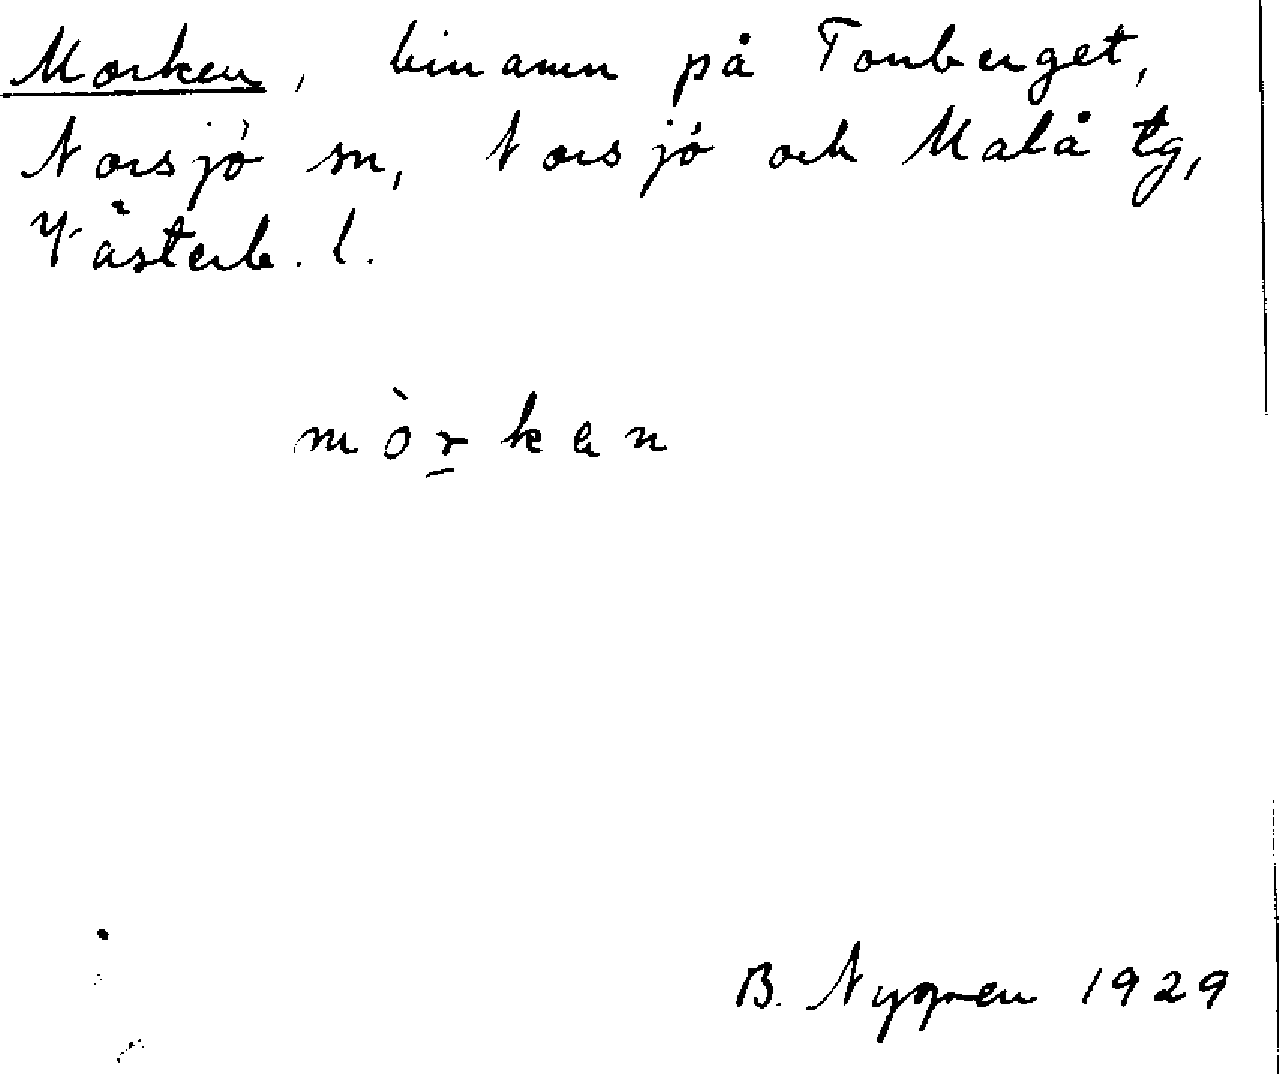 Morken, binamn på Tonberget,
Norsjö sn, Norsjö och Malå tg,
Västerb. l.
mòr̲ken
B. Nygren 1929